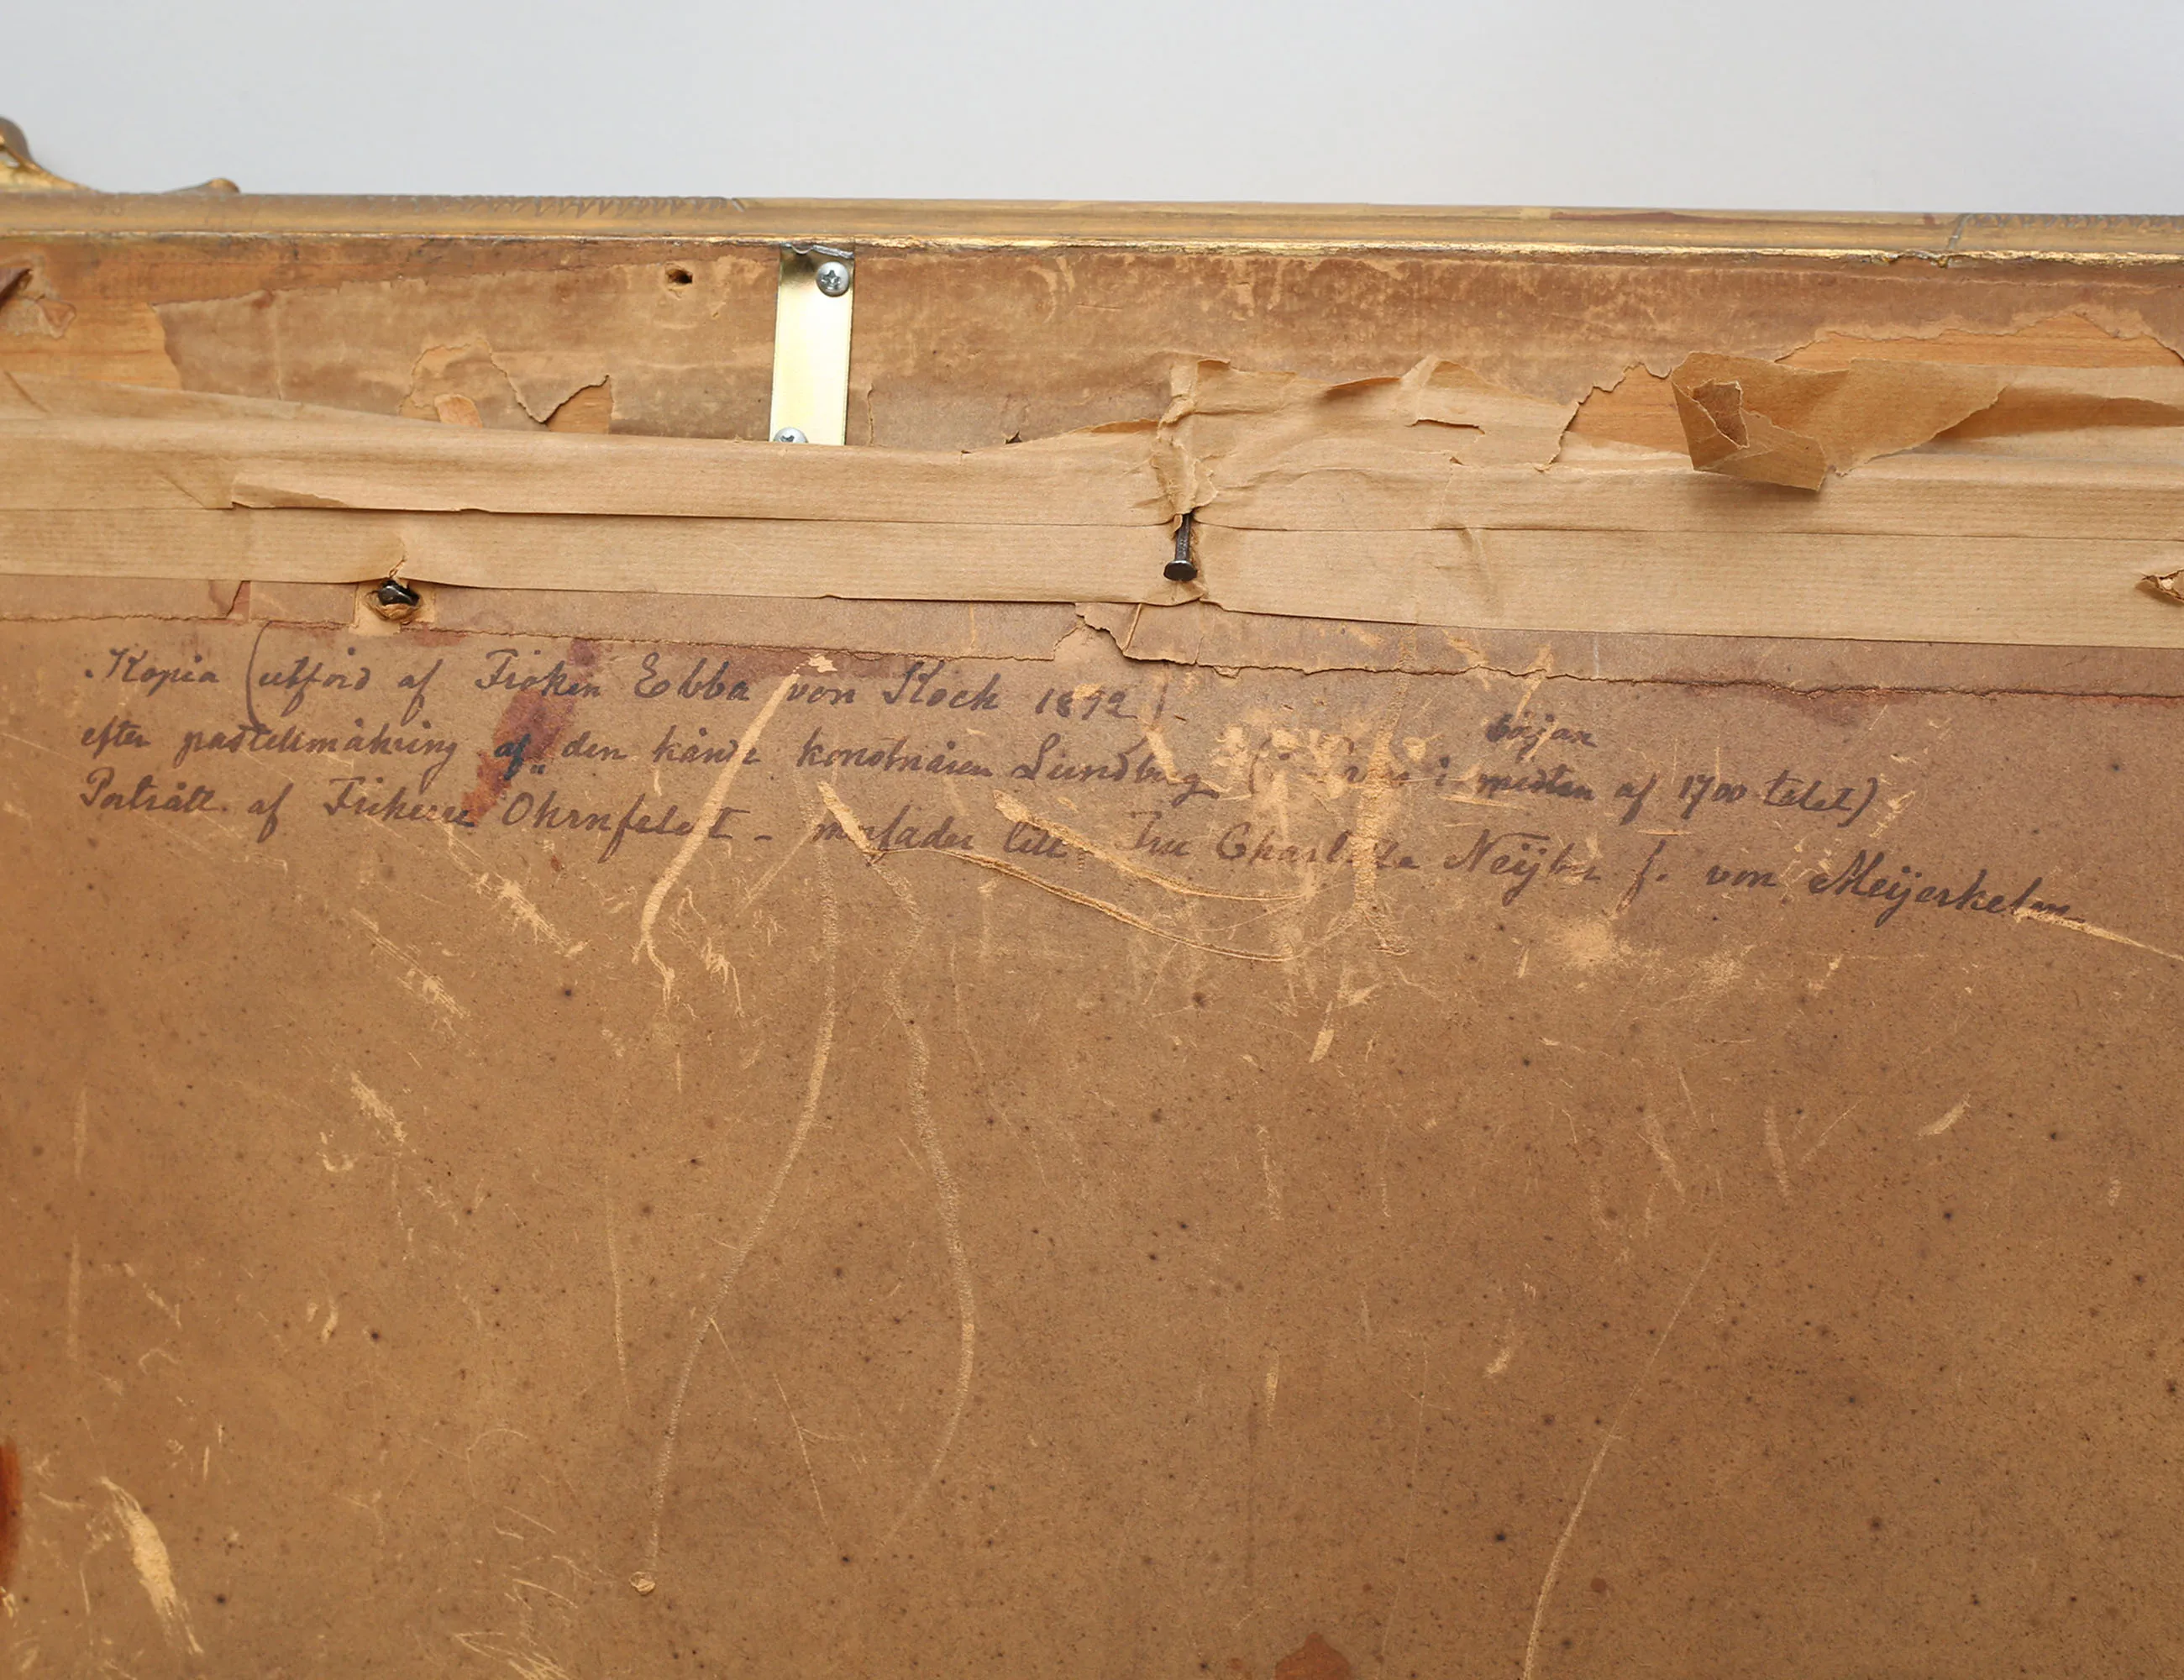 Kopia (utförd af Fröken Ebba von Koch 1892)
början
efter pastellmålning af den kände konstnären Lundberg ( i midten af 1700 talet)
Porträtt af Friherre Ohrnfeldt - morfader till Fru Charlotta Neijber f. von Meijerhelm